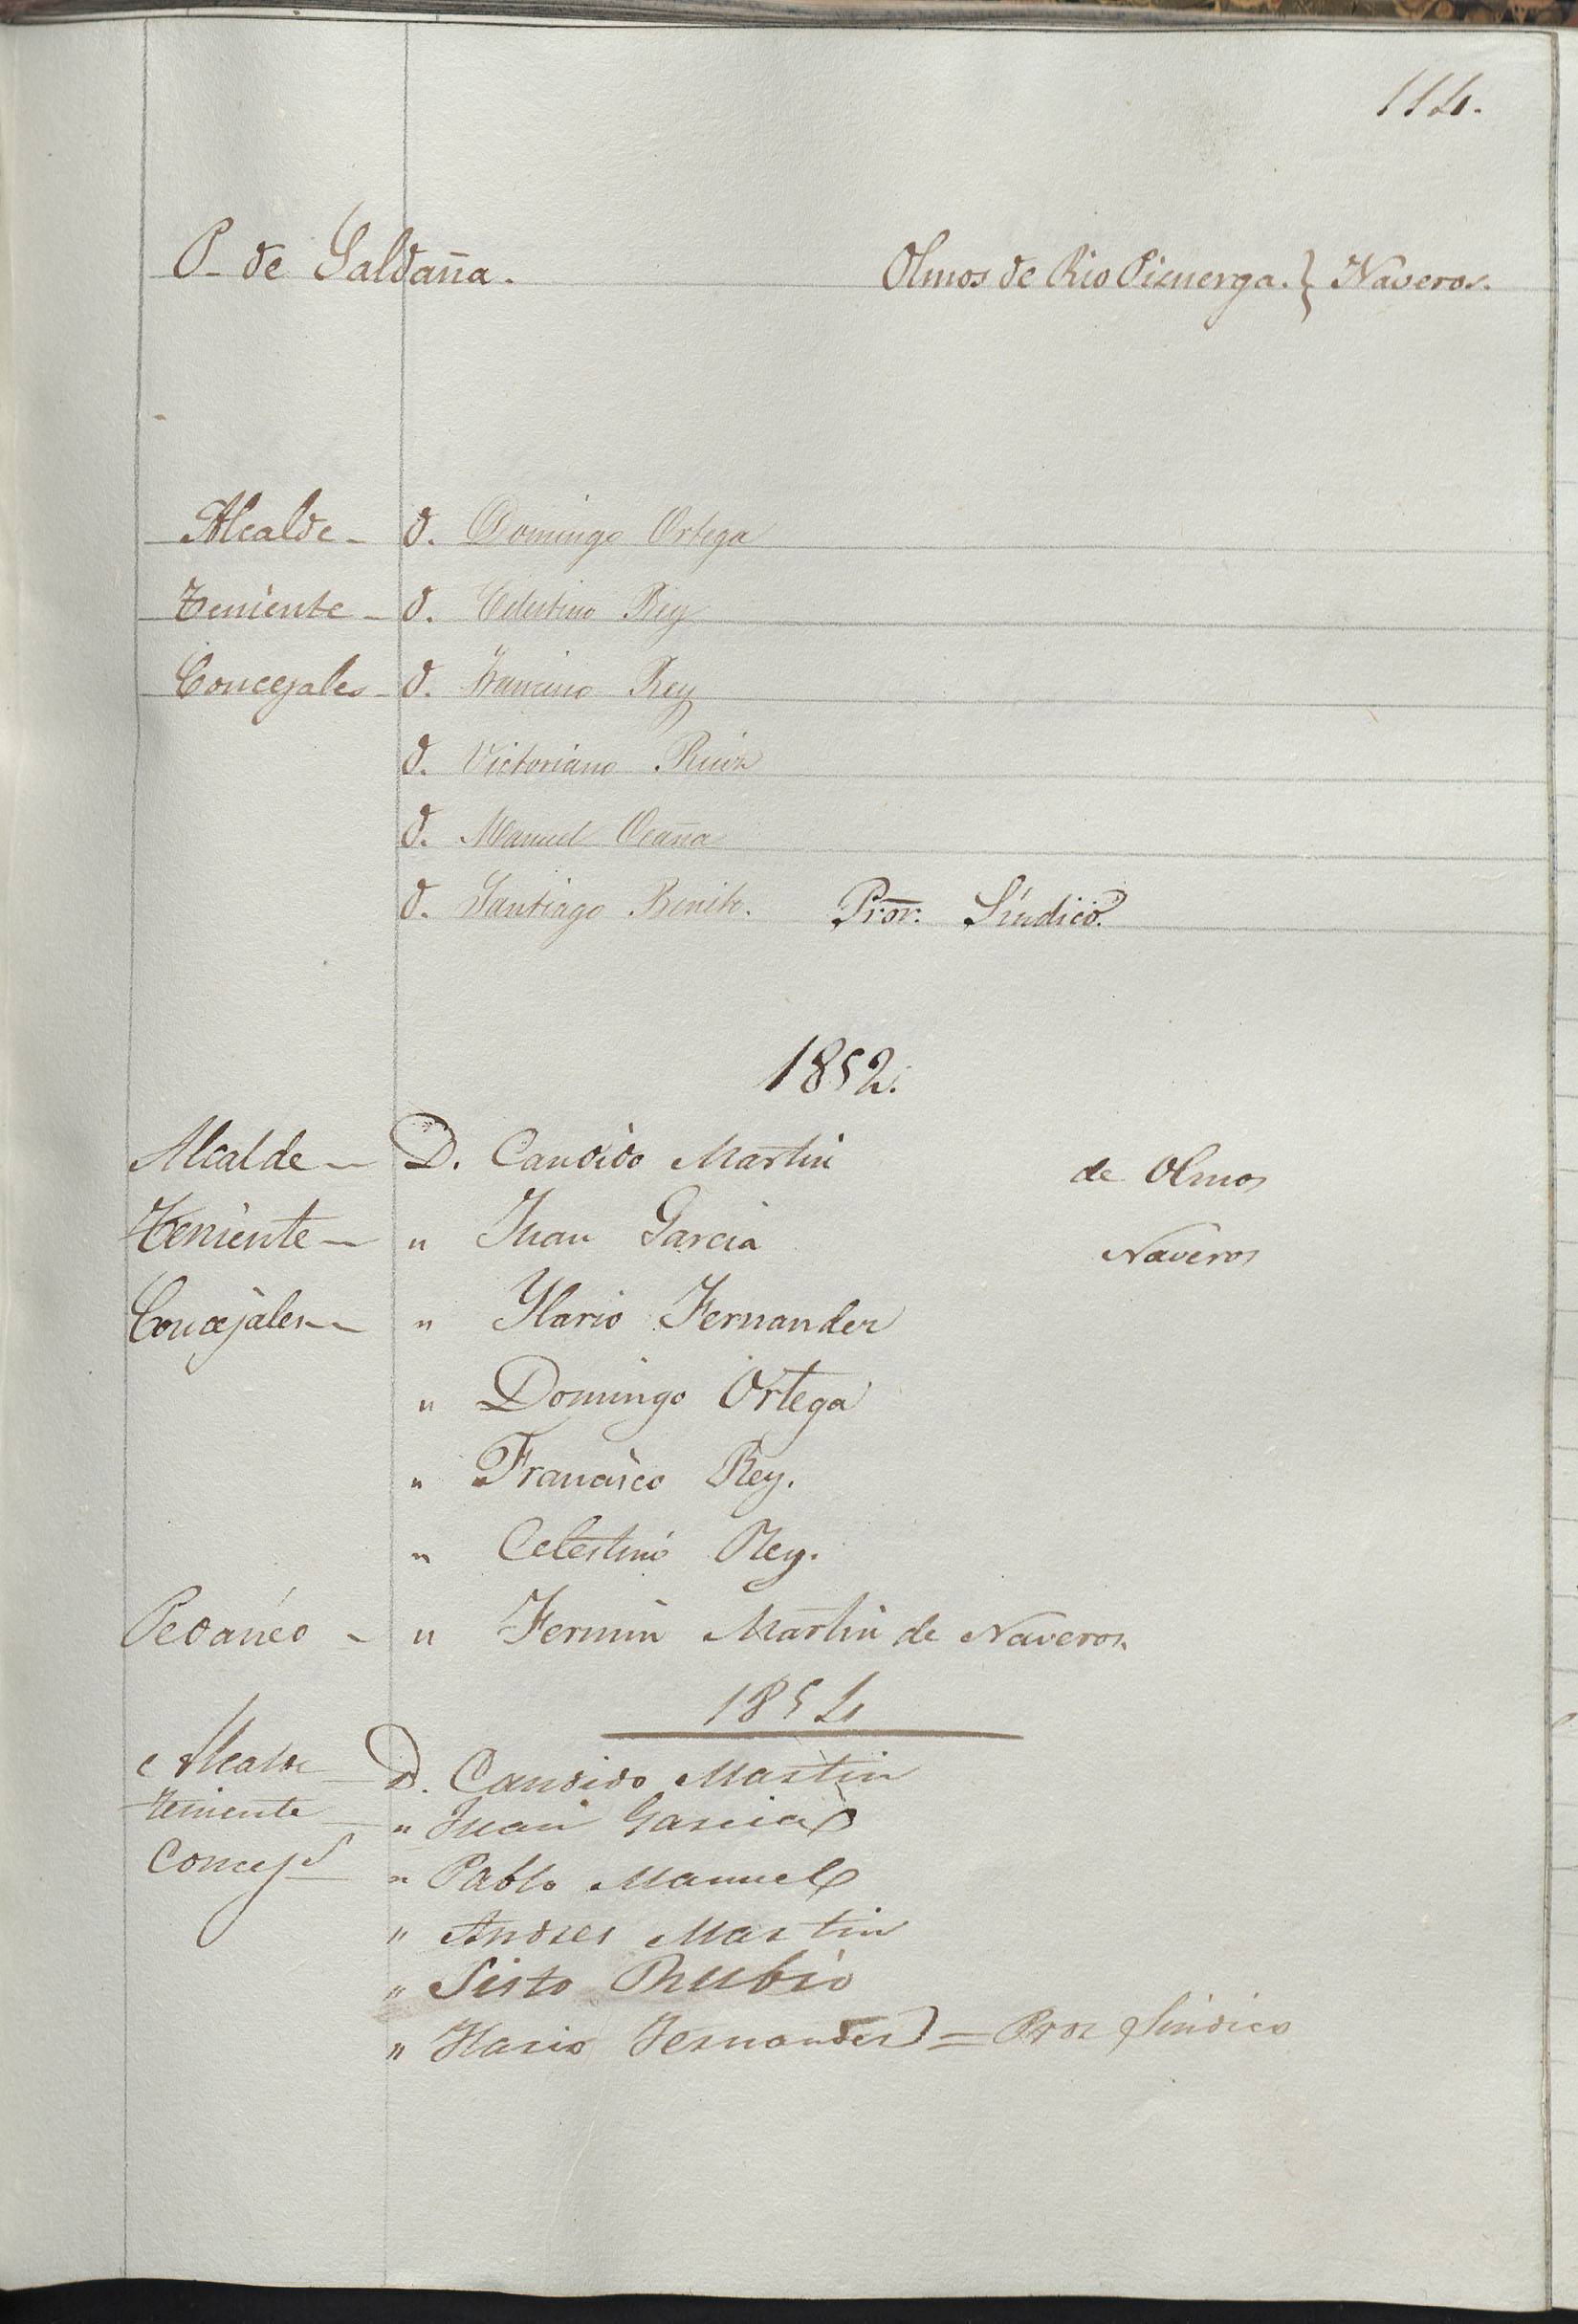 114.
P. de Saldaña. Olmos de Rio Pisuerga. } Naveros.
Alcalde - D. Domingo Ortega
Teniente - D. Celestino Rey
Concejales - D. Rey
D. Victoriano Ruiz
D. Manuel Ocaña
D. Santiago Benito. Pror. Síndico.
1852.
Alcalde - D. Candido Martin de Olmos
Teniente - " Juan Garcia Naveros
Concejales - " Ylario Fernandez
" Domingo Ortega
" Francisco Rey.
" Celestino Rey.
Pedaneo - " Fermin Martin de Naveros.
1854
Alcalde D. Candido Martin
Teniente " Juan Garcia
Concejs " Pablo Manuel
" Andres Martin
" Sisto Rubio
" Ylario Fernandez = Pror Sindico